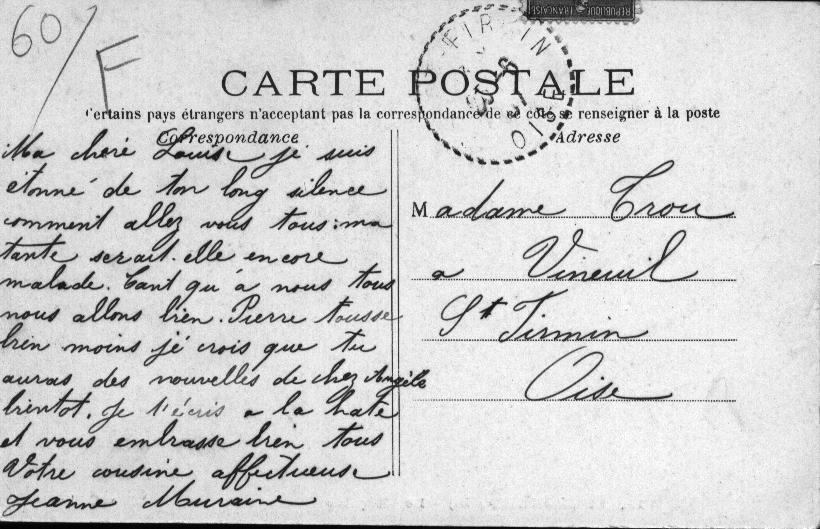 60/F
RÉPUBLIQUE FRANÇAISE
FIRMIN
OISE
CARTE POSTALE
Certains pays étrangers n'acceptant pas la correspondance de ce côté, se renseigner à la poste
Correspondance
Ma cheré Louise je suis
étonné de ton long silence
comment allez vous tous; ma
tante serait-elle encore
malade. Tant qu'à nous tous
nous allons bien. Pierre tousse
bien moins jé crois que tu
auras des nouvelles de chez Angèle
bientot. Je t'écris a la hate
et vous embrasse bien tous
Votre cousine affectueuse
Jeanne Muraine
Adresse
Madame Trou
a Vineuil
St Firmin
Oise